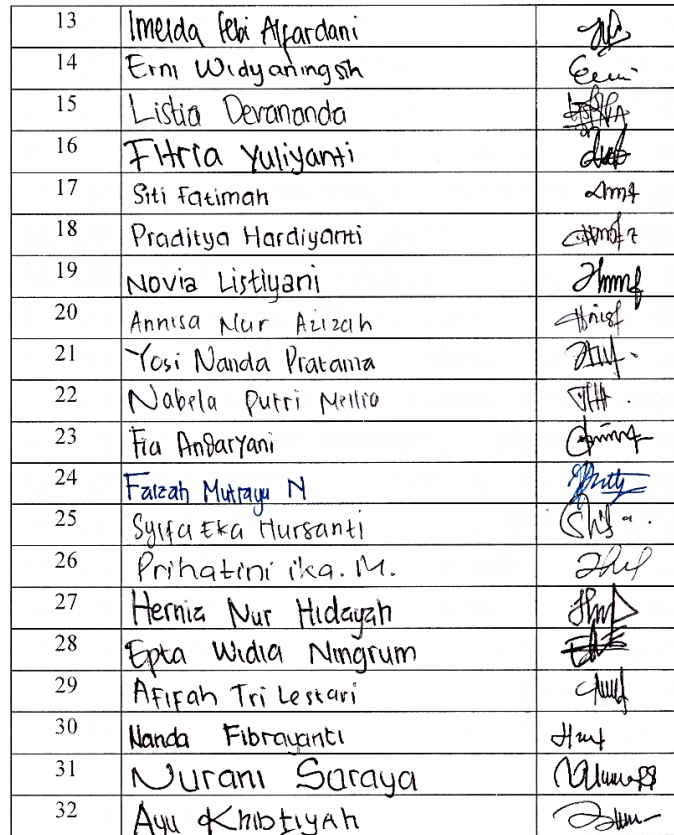 13 Imelda Febi Alfardani
14 Erni Widyaningsih
15 Listia Devananda
16 Fitria Yuliyanti
17 Siti Fatimah
18 Praditya Hardiyanti
19 Novia Listiyani
20 Annisa Nur Azizah
21 Yosi Nanda Pratama
22 Nabela Putri
23 Fia Andaryani
24 Faizah Mutrayu N
25 Syifa Eka Hursanti
26 Prihatini ika. M.
27 Hernia Nur Hidayah
28 Epta Widia Ningrum
29 Afifah Tri Lestari
30 Nanda Fibrayanti
31 Nurani Soraya
32 Ayu Khibtiyah